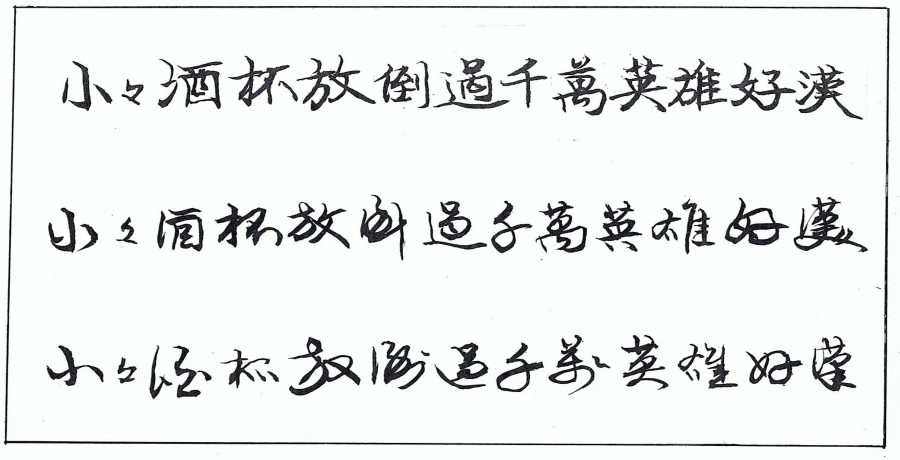 小々酒杯放倒過千萬英雄好漢
小々酒杯放倒過千萬英雄好漢
小々酒杯放倒過千萬英雄好漢